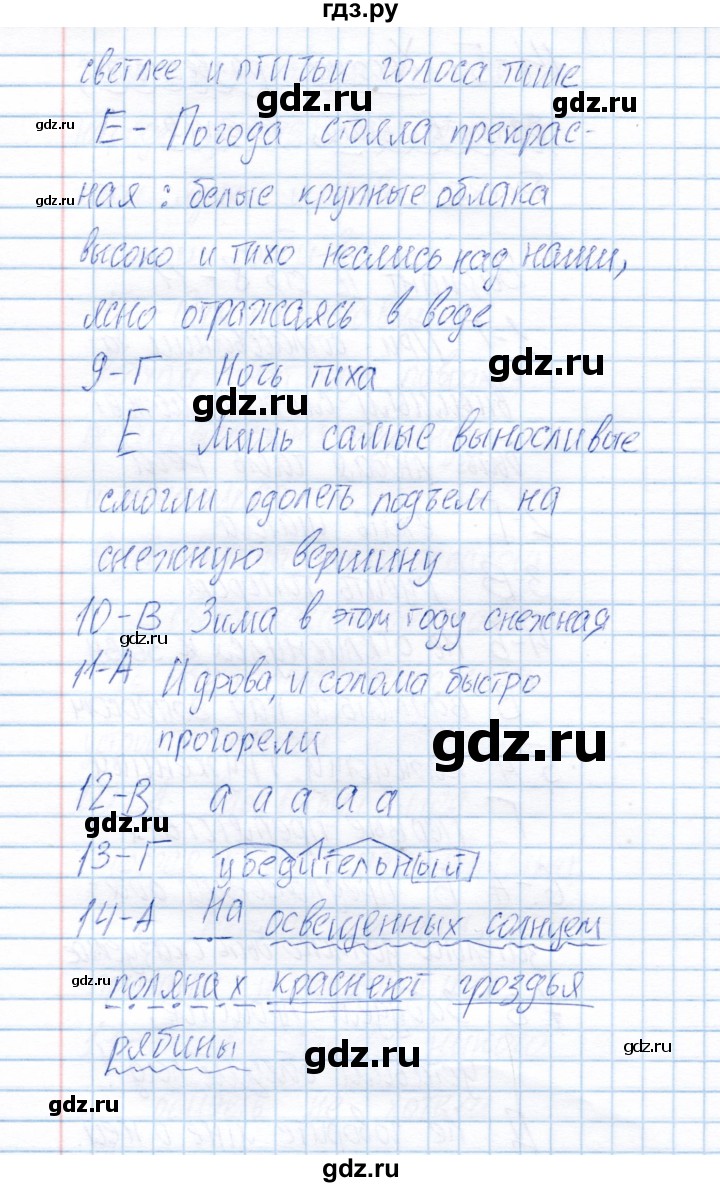 гдз.ру
светлее и птичьи голоса тише
gdz.ru gdz.ru
gdz.ru Е - Погода стояла прекрас-
gdz.ru ная : белые крупные облака
высоко и тихо неслись над нами,
ясно отражаясь в воде
gdz.ru
9-Г Ночь тиха
gdz.ru
Е Лишь самые выносливые
смогли одолеть подъем на
снежную вершину
10-В Зима в этом году снежная
gdz.ru gdz.ru
11-А И дрова, и солома быстро
прогорели
gdz.ru
12-В а а а а а
gdz.ru
13-Г убедительный
14-А На освещенных солнцем
gdz.ru полянах краснеют гроздья
рябины
gdz.ru gdz.ru
gdz.ru
gdz.ru